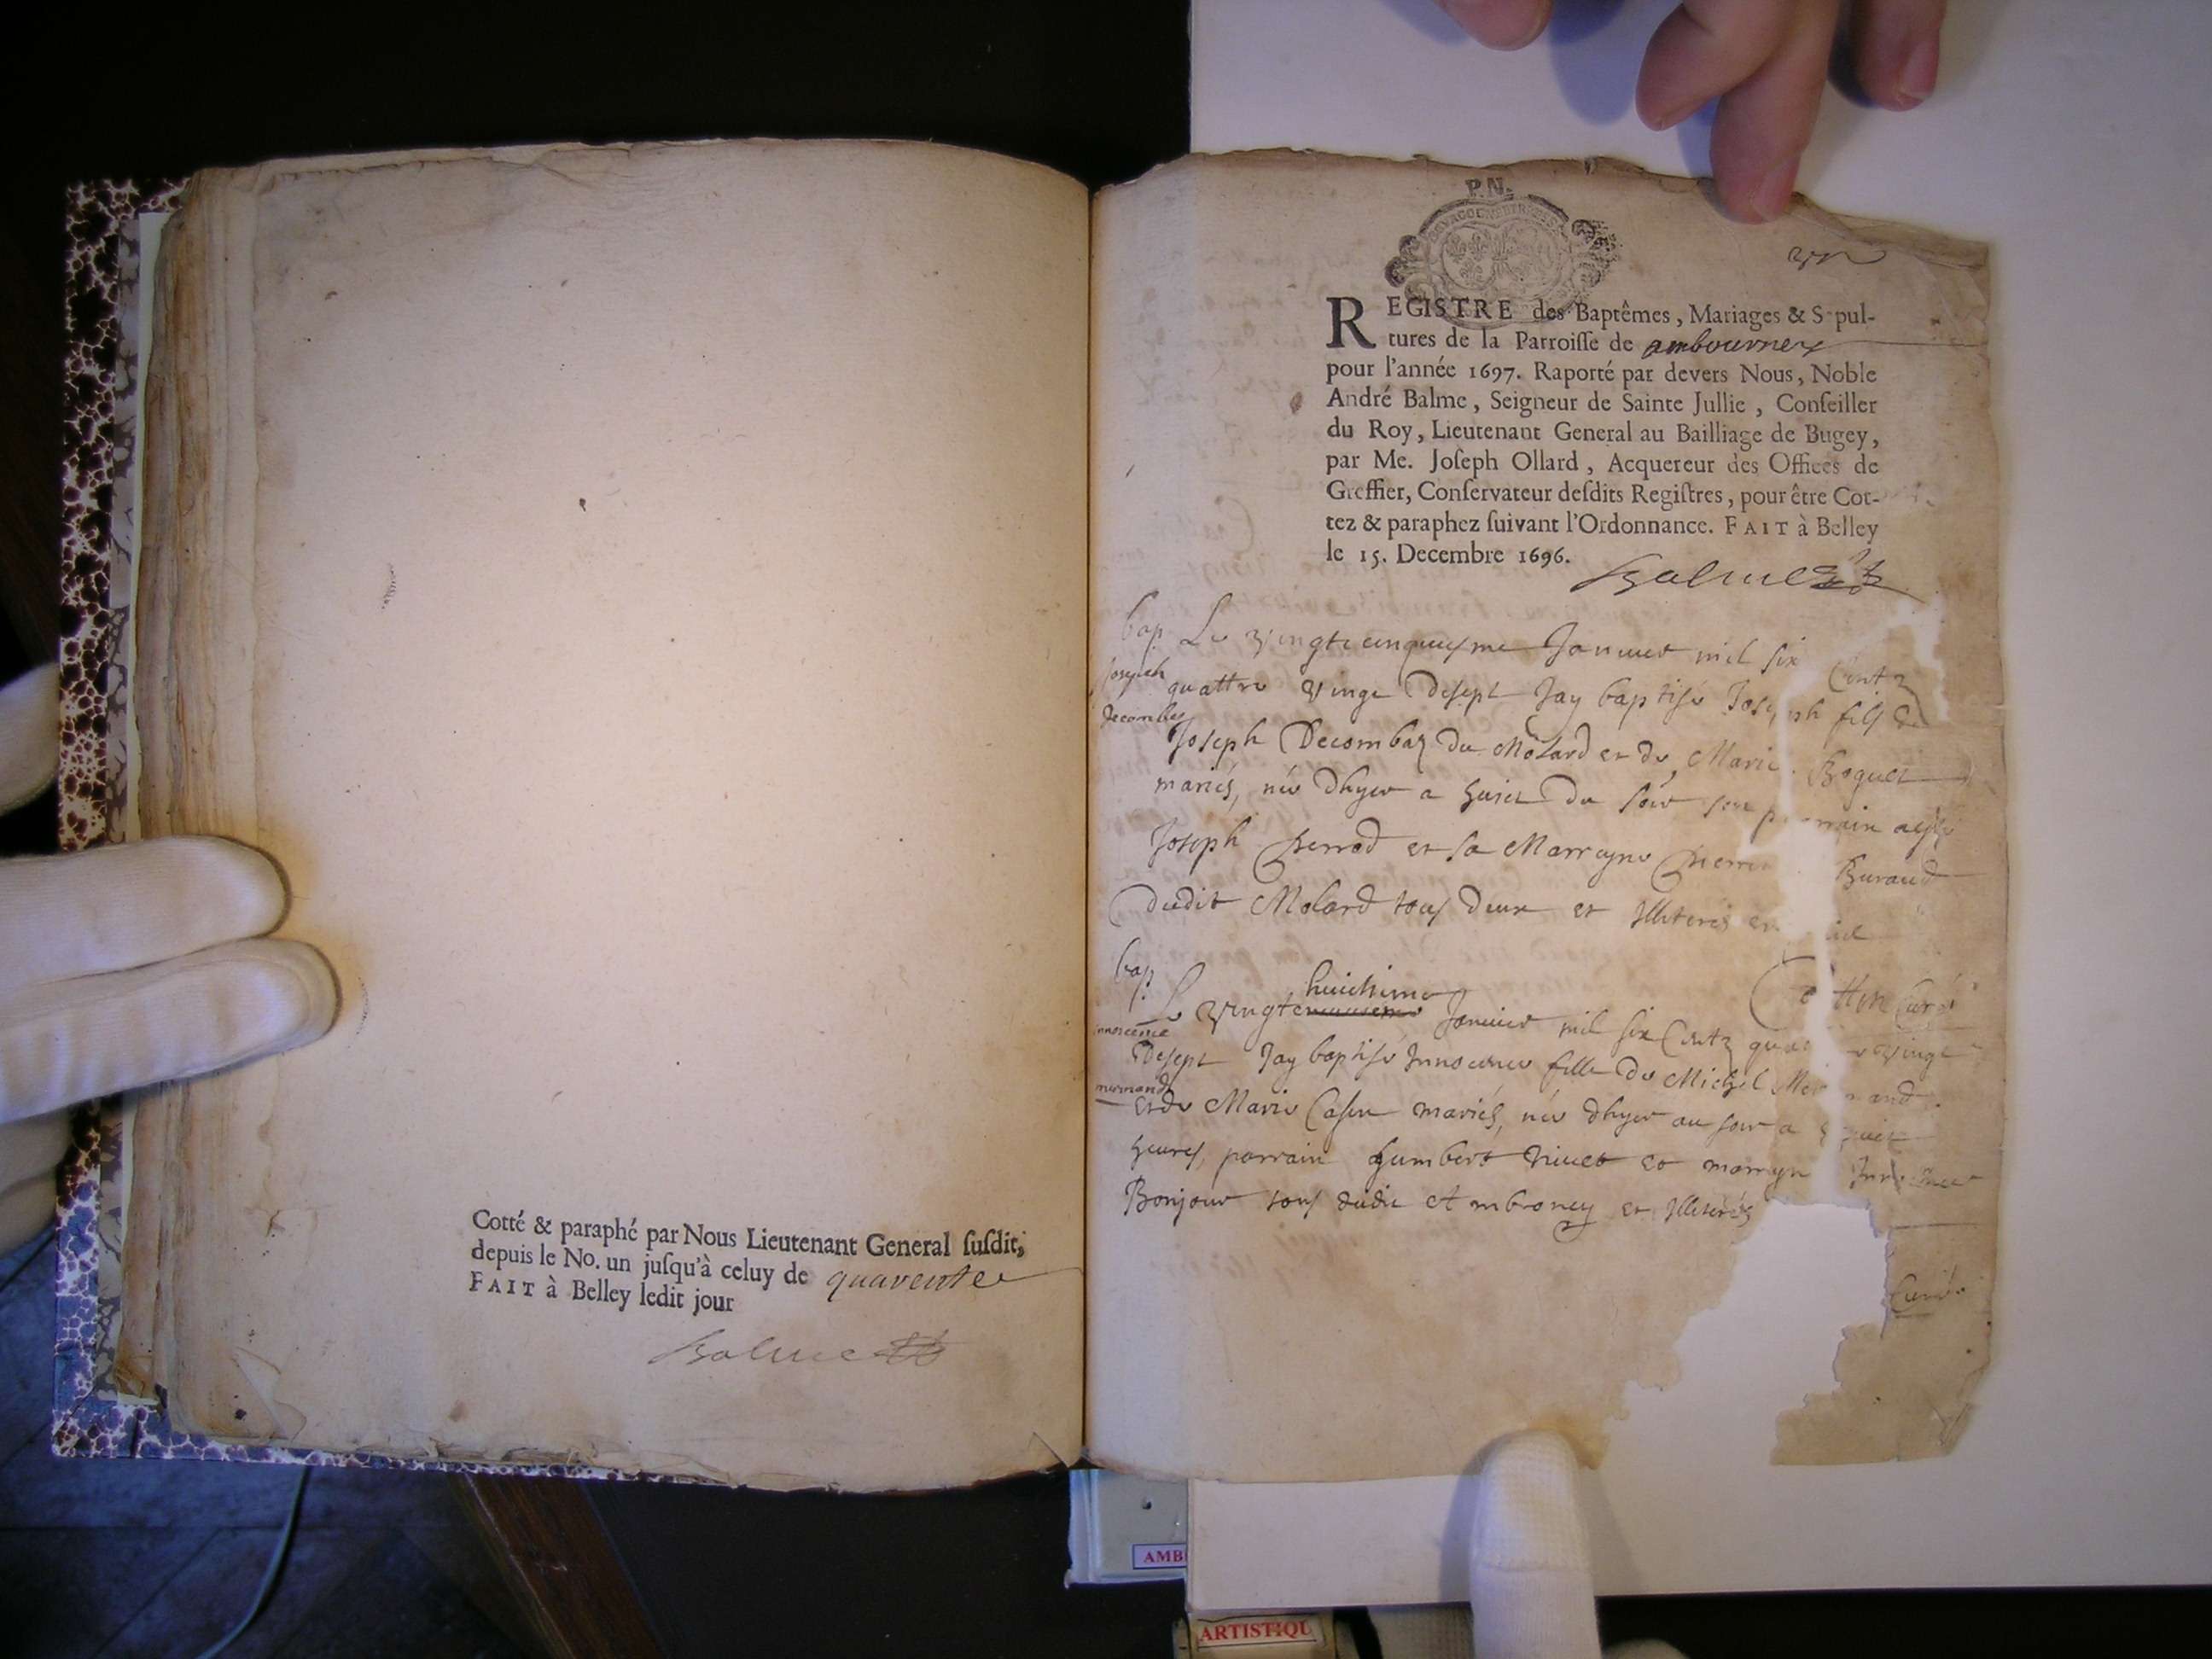 Cotté & paraphé par Nous Lieutenant General ſuſdit,
depuis le No. un juſqu'à celuy de quarente
FAIT à Belley ledit jour
Balme
P.N.
REGISTRE des Baptêmes, Mariages & S pul-
tures de la Parroiſſe de ambournex
pour l'année 1697. Raporté par devers Nous, Noble
André Balme, Seigneur de Sainte Jullie, Conſeiller
du Roy, Lieutenant General au Bailliage de Bugey,
par Me. Joſeph Ollard, Acquereur des Offices de
Greffier, Conſervateur deſdits Regiſtres, pour être Cot-
tez & paraphez ſuivant l'Ordonnance. FAIT à Belley
le 15. Decembre 1696.
Balme
bap. Le vingt cinquiesme Janvier mil six Centz
Joseph
quattre vingt desept Jay baptisé Joseph fils de
Decombes
Joseph Decombaz du Molard et de Marie Boquet
mariés, née dhyer a huict du soir son p rrain a esté
Joseph et sa Marrayne Pierre Buraud
dudit Molard tous deux et Illiterés
bap. tton Curé
huictieme
Le vingt Janvier mil six Centz qua vingt
innocence
desept Jay baptisé Innocence fille de Michel Mer mand
mermand
et de Marie Casin mariés, née dhyer au soir a huict
heures, parrain humbert nivet et marrayn Inno
Bonjour tous dudit Ambroney et Illiterés
Curé
AMB
ARTISTIQU